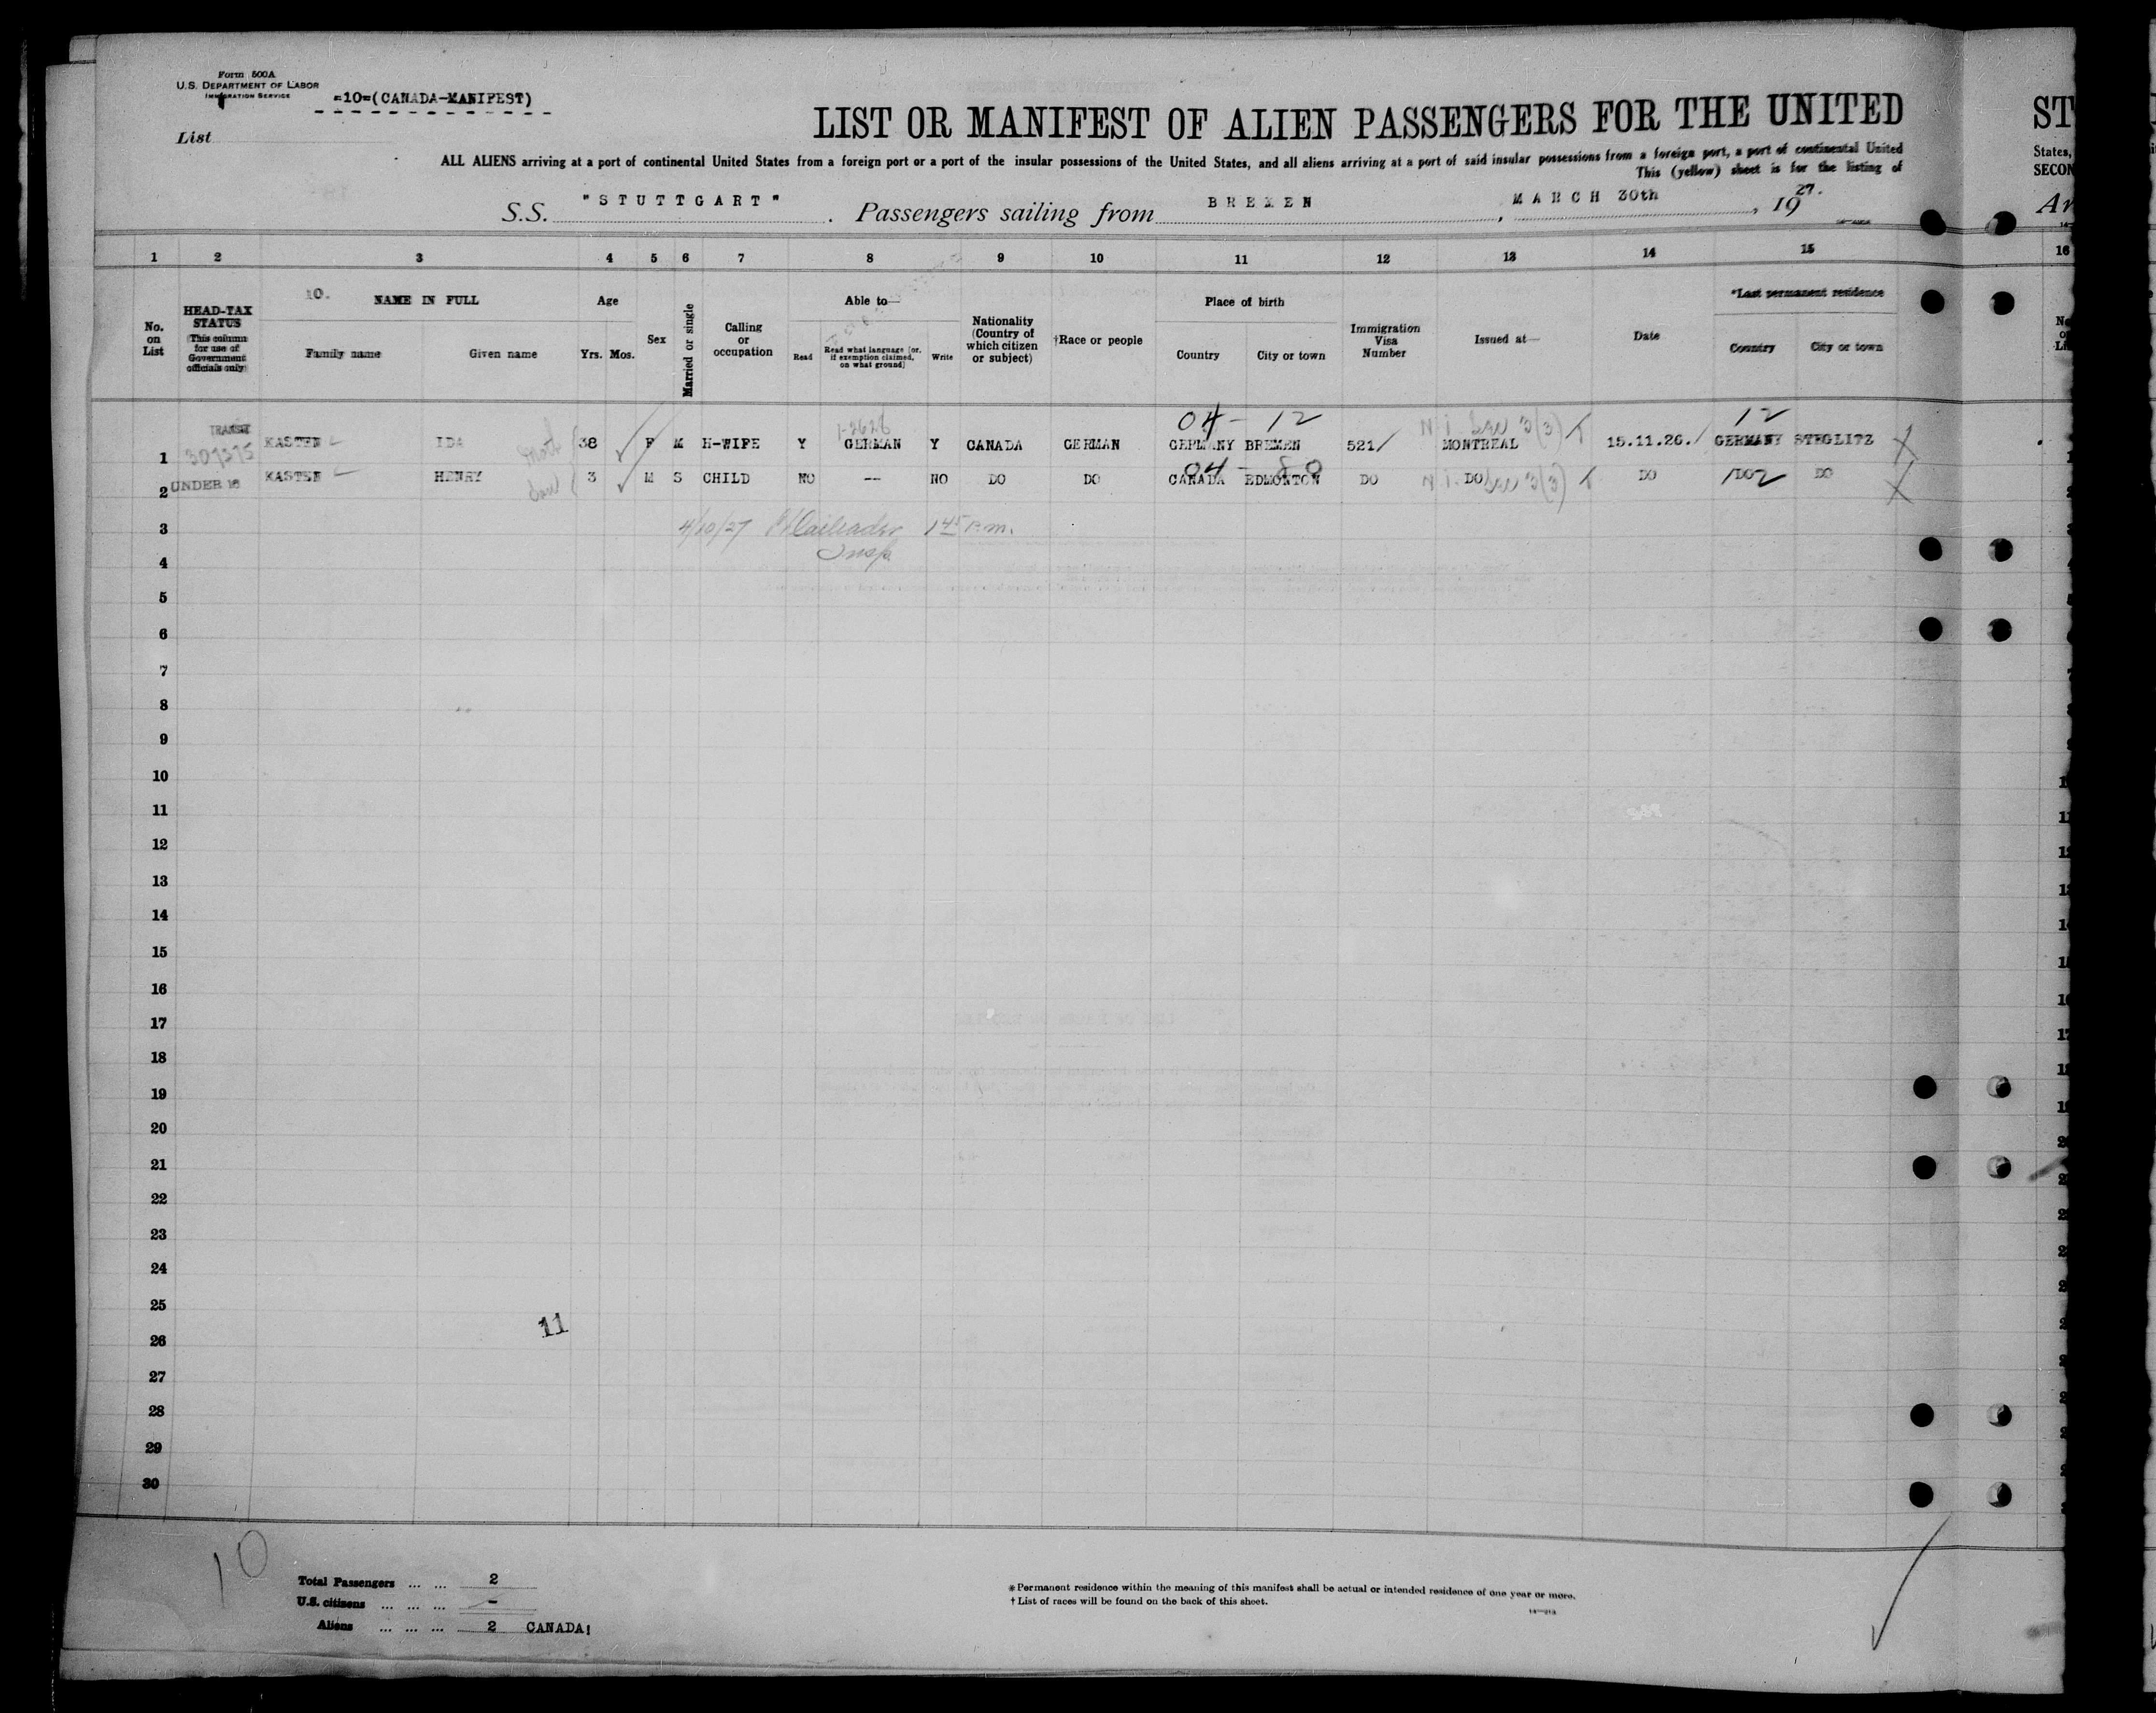 Form 500A
U.S. DEPARTMENT OF LABOR
IMMIGRATION SERVICE
=10=(CANADA-MANIFEST)
List
LIST OR MANIFEST OF ALIEN PASSENGERS FOR THE UNITED
ST
ALL ALIENS arriving at a port of continental United States from a foreign port or a port of the insular possessions of the United States, and all aliens arriving at a port of said insular possessions from a foreign port, a port of continental United
States,
This (yellow) sheet is for the listing of
SECON
S.S. "STUTTGART" . Passengers sailing from BREMEN , MARCH 30th , 19 27.
Ar
1 2 3 4 5 6 7 8 9 10 11 12 13 14 15 16
No. on List
HEAD-TAX STATUS (This column for use of Government officials only)
10. NAME IN FULL
Family name Given name
Age
Yrs. Mos.
Sex
Married or single
Calling or occupation
Able to—
Read
Read what language [or, if exemption claimed, on what ground]
Write
Nationality (Country of which citizen or subject)
†Race or people
Place of birth
Country City or town
Immigration Visa Number
Issued at—
Date
*Last permanent residence
Country City or town
04 - 12 12
TRANSIT
307375
1-2626
1 KASTEN IDA 38 F M H-WIFE Y GERMAN Y CANADA GERMAN GERMANY BREMEN 521/ MONTREAL 15.11.26. GERMANY STEGLITZ
04 - 80
2 UNDER 16 KASTEN HENRY 3 M S CHILD NO -- NO DO DO CANADA EDMONTON DO DO DO DO DO
3 4/10/27 1 45 P.m.
Insp.
4
5
6
7
8
9
10
11
12
13
14
15
16
17
18
19
20
21
22
23
24
25
11
26
27
28
29
30
10
Total Passengers ... ... 2
U.S. citizens ... ... ... -
Aliens ... ... ... 2 CANADA!
*Permanent residence within the meaning of this manifest shall be actual or intended residence of one year or more.
†List of races will be found on the back of this sheet.